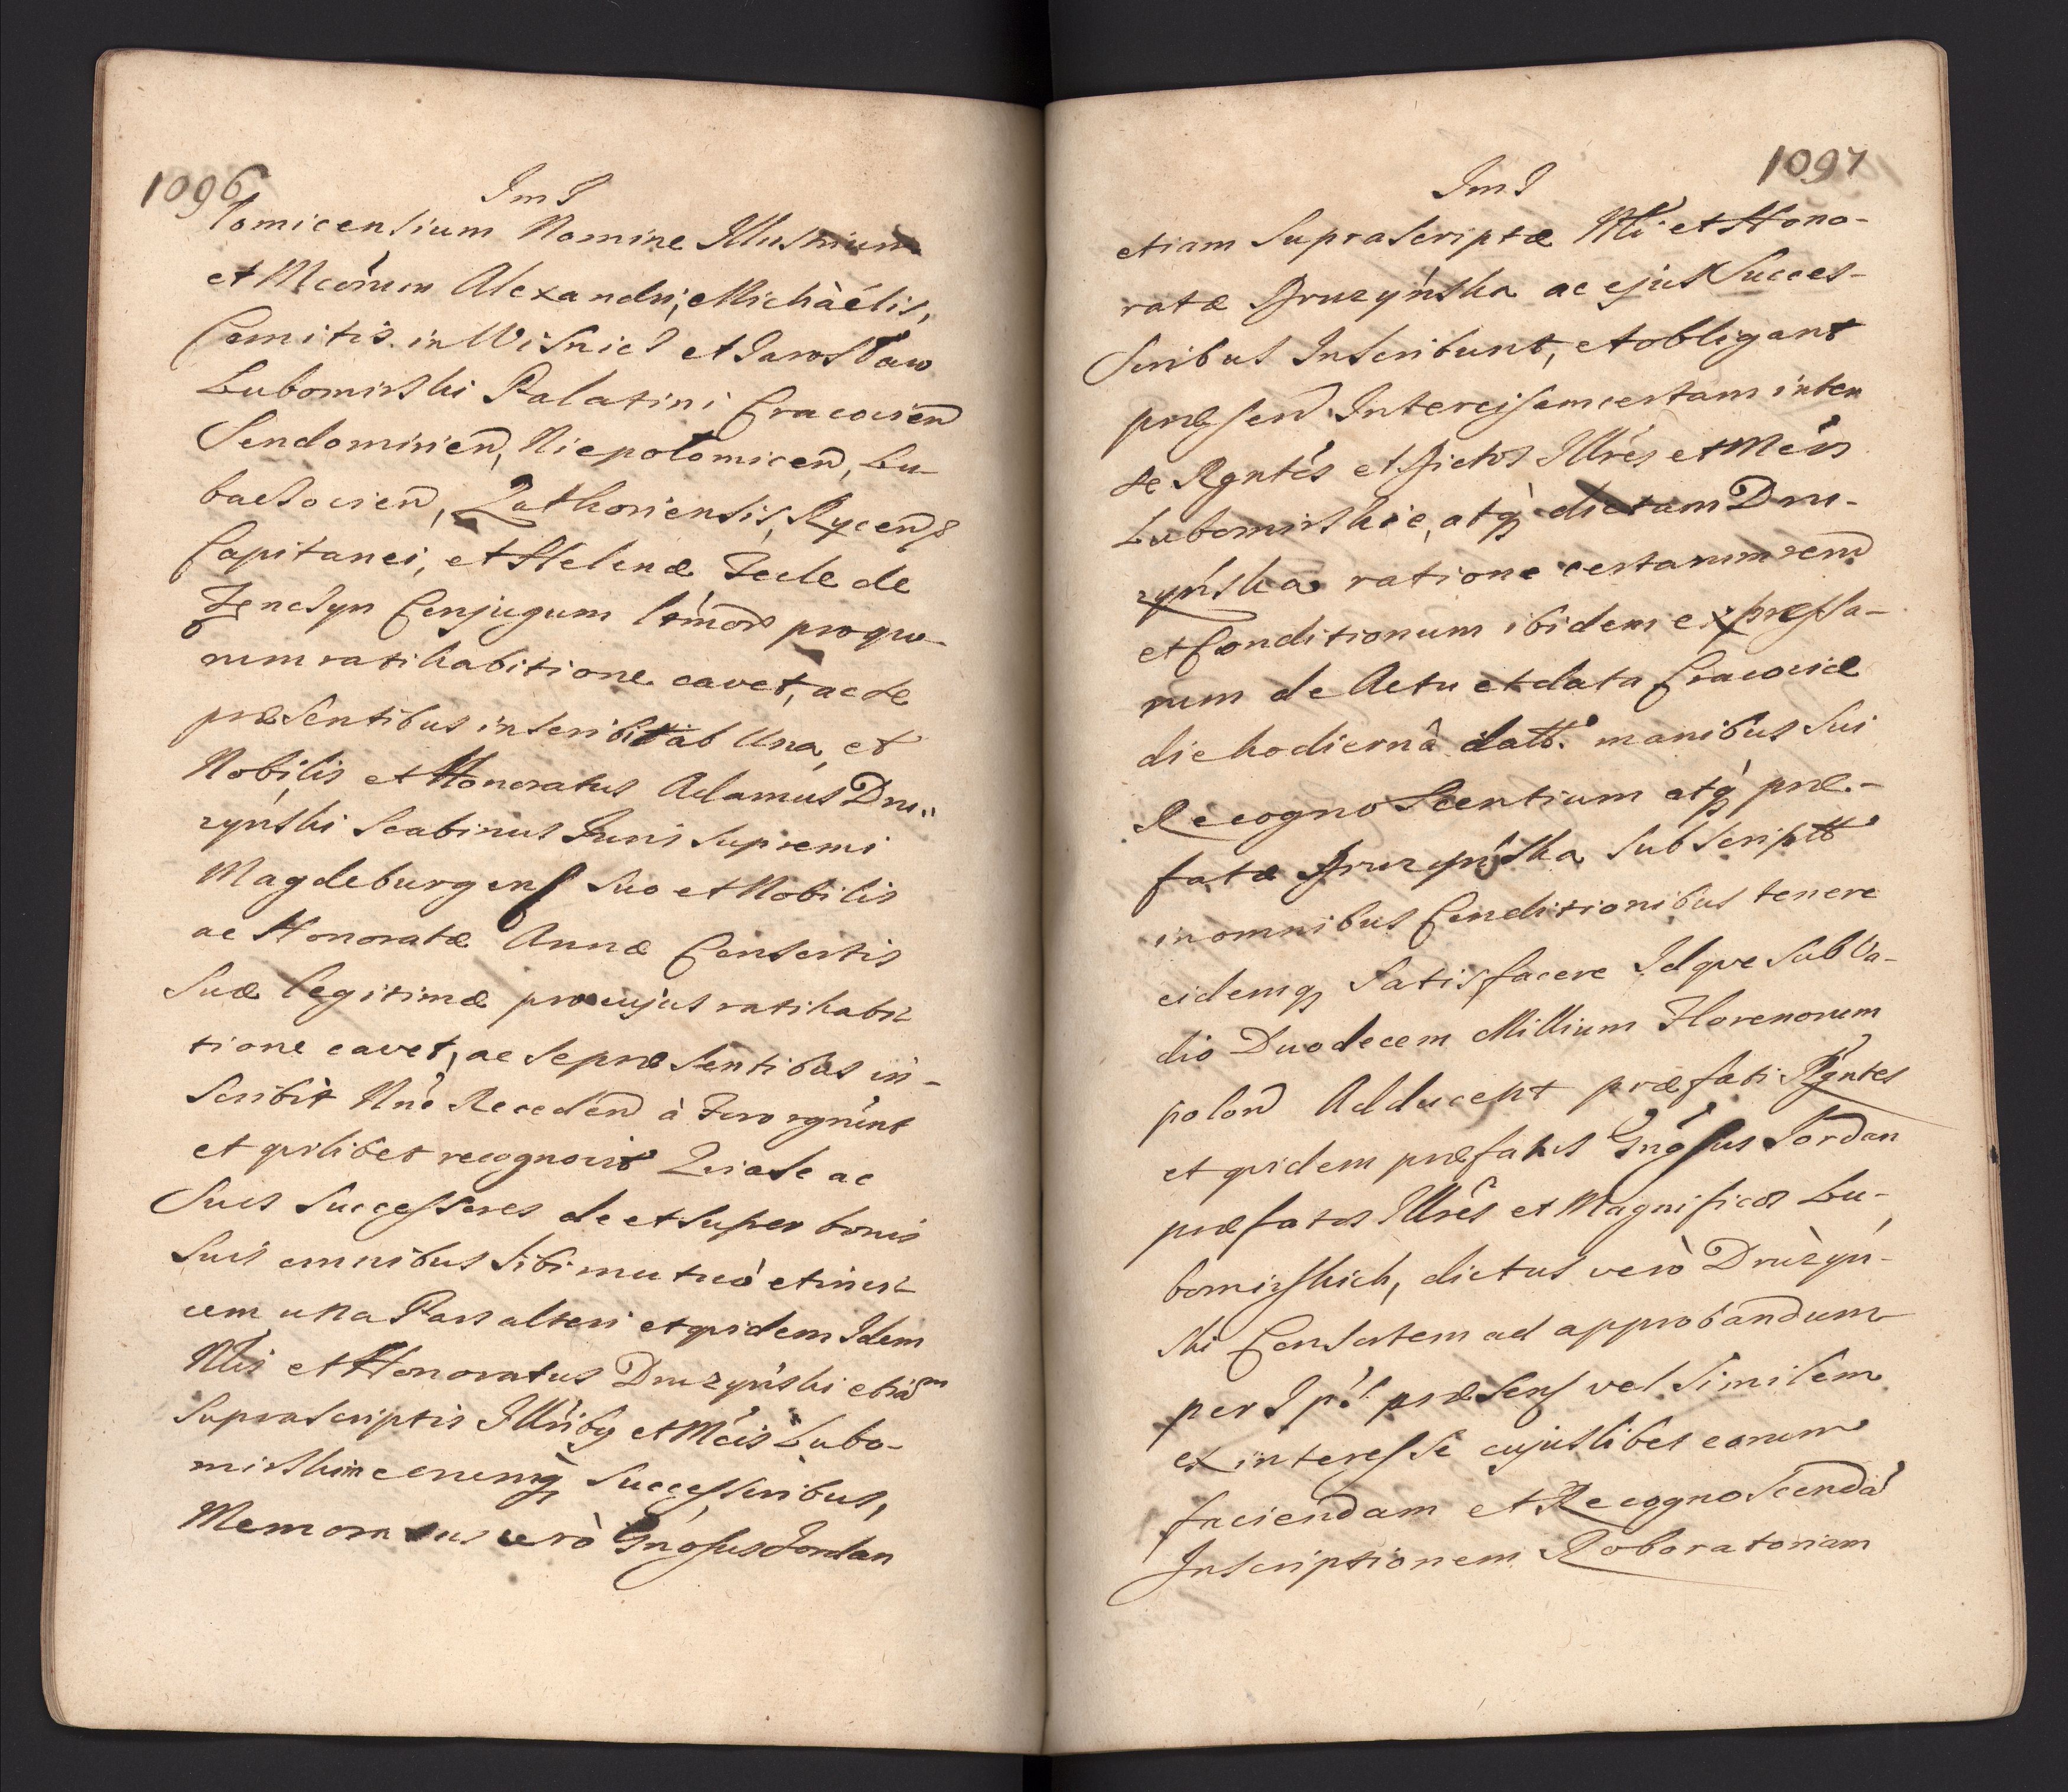 1096
ImJ
lomicensium Nomine Illustrium
et Mcorum Alexandri, Michàélis,
Comitis in Wisnicz et Jarosław
Lubomirski Palatini Cracovien
Sendomirien, Niepołomicen, Lu-
baczovien, Zathoriensis, Rycens
Capitanei, et Helenæ Teclæ de
Tęnczyn Conjugum pro quo-
rum ratihabitione cavet, ac de
præsentibus inscribit ab Una, et
Nobilis et Honoratus Adamus Dru-
zyński Scabinus Juris Supremi
Magdeburgens Suo et Nobilis
ac Honoratæ Annæ Consortis
Suæ legitimæ pro cujus ratihabi-
tione cavet, ac se præsentibus in-
scribit Receden à Foro rgnunt
et quilibet recognovit Quia se ac
Suos Successores de et super bonis
Suis omnibus sibi mutuò et invi-
cem una Pars alteri et quidem Idem
Nlis et Honoratus Druzyński etiam
supra scriptis Illribq et Mcis Lubo-
mirskim eorumq Successoribus,
Memoratus verò Gnosus Jordan
1097
ImJ
etiam Suprascriptæ Nli et Hono-
ratæ Druzyńska ac ejus Succes-
soribus Inscribunt, et obligant
præsen Intercisam certam inter
se Rgntes et dictos Illres et Mcos
Lubomirskie, atq dictam Dru-
zyńska ratione certarum rerum
et Conditionum ibidem expressa-
rum de Actu et data Cracoviæ
die hodiernâ datt. manibus Sui
Recognoscentium atq præ-
fatæ Druzyńska Subscriptt
in omnibus Conditionibus tenere
eidemq Satisfacere Idque Sub Va-
dio Duodecem Millium Florenorum
polon Adducent præfati Rgntes
et quidem præfatus Gnosus Jordan
præfatos Illres et Magnificos Lu-
bomirskich, dictus verò Druzyń-
ski Consortem ad approbandum
per præsens vel Similem
ex interesse cujuslibet eorum
faciendam et Recognoscenda
Inscriptionem Roboratoriam